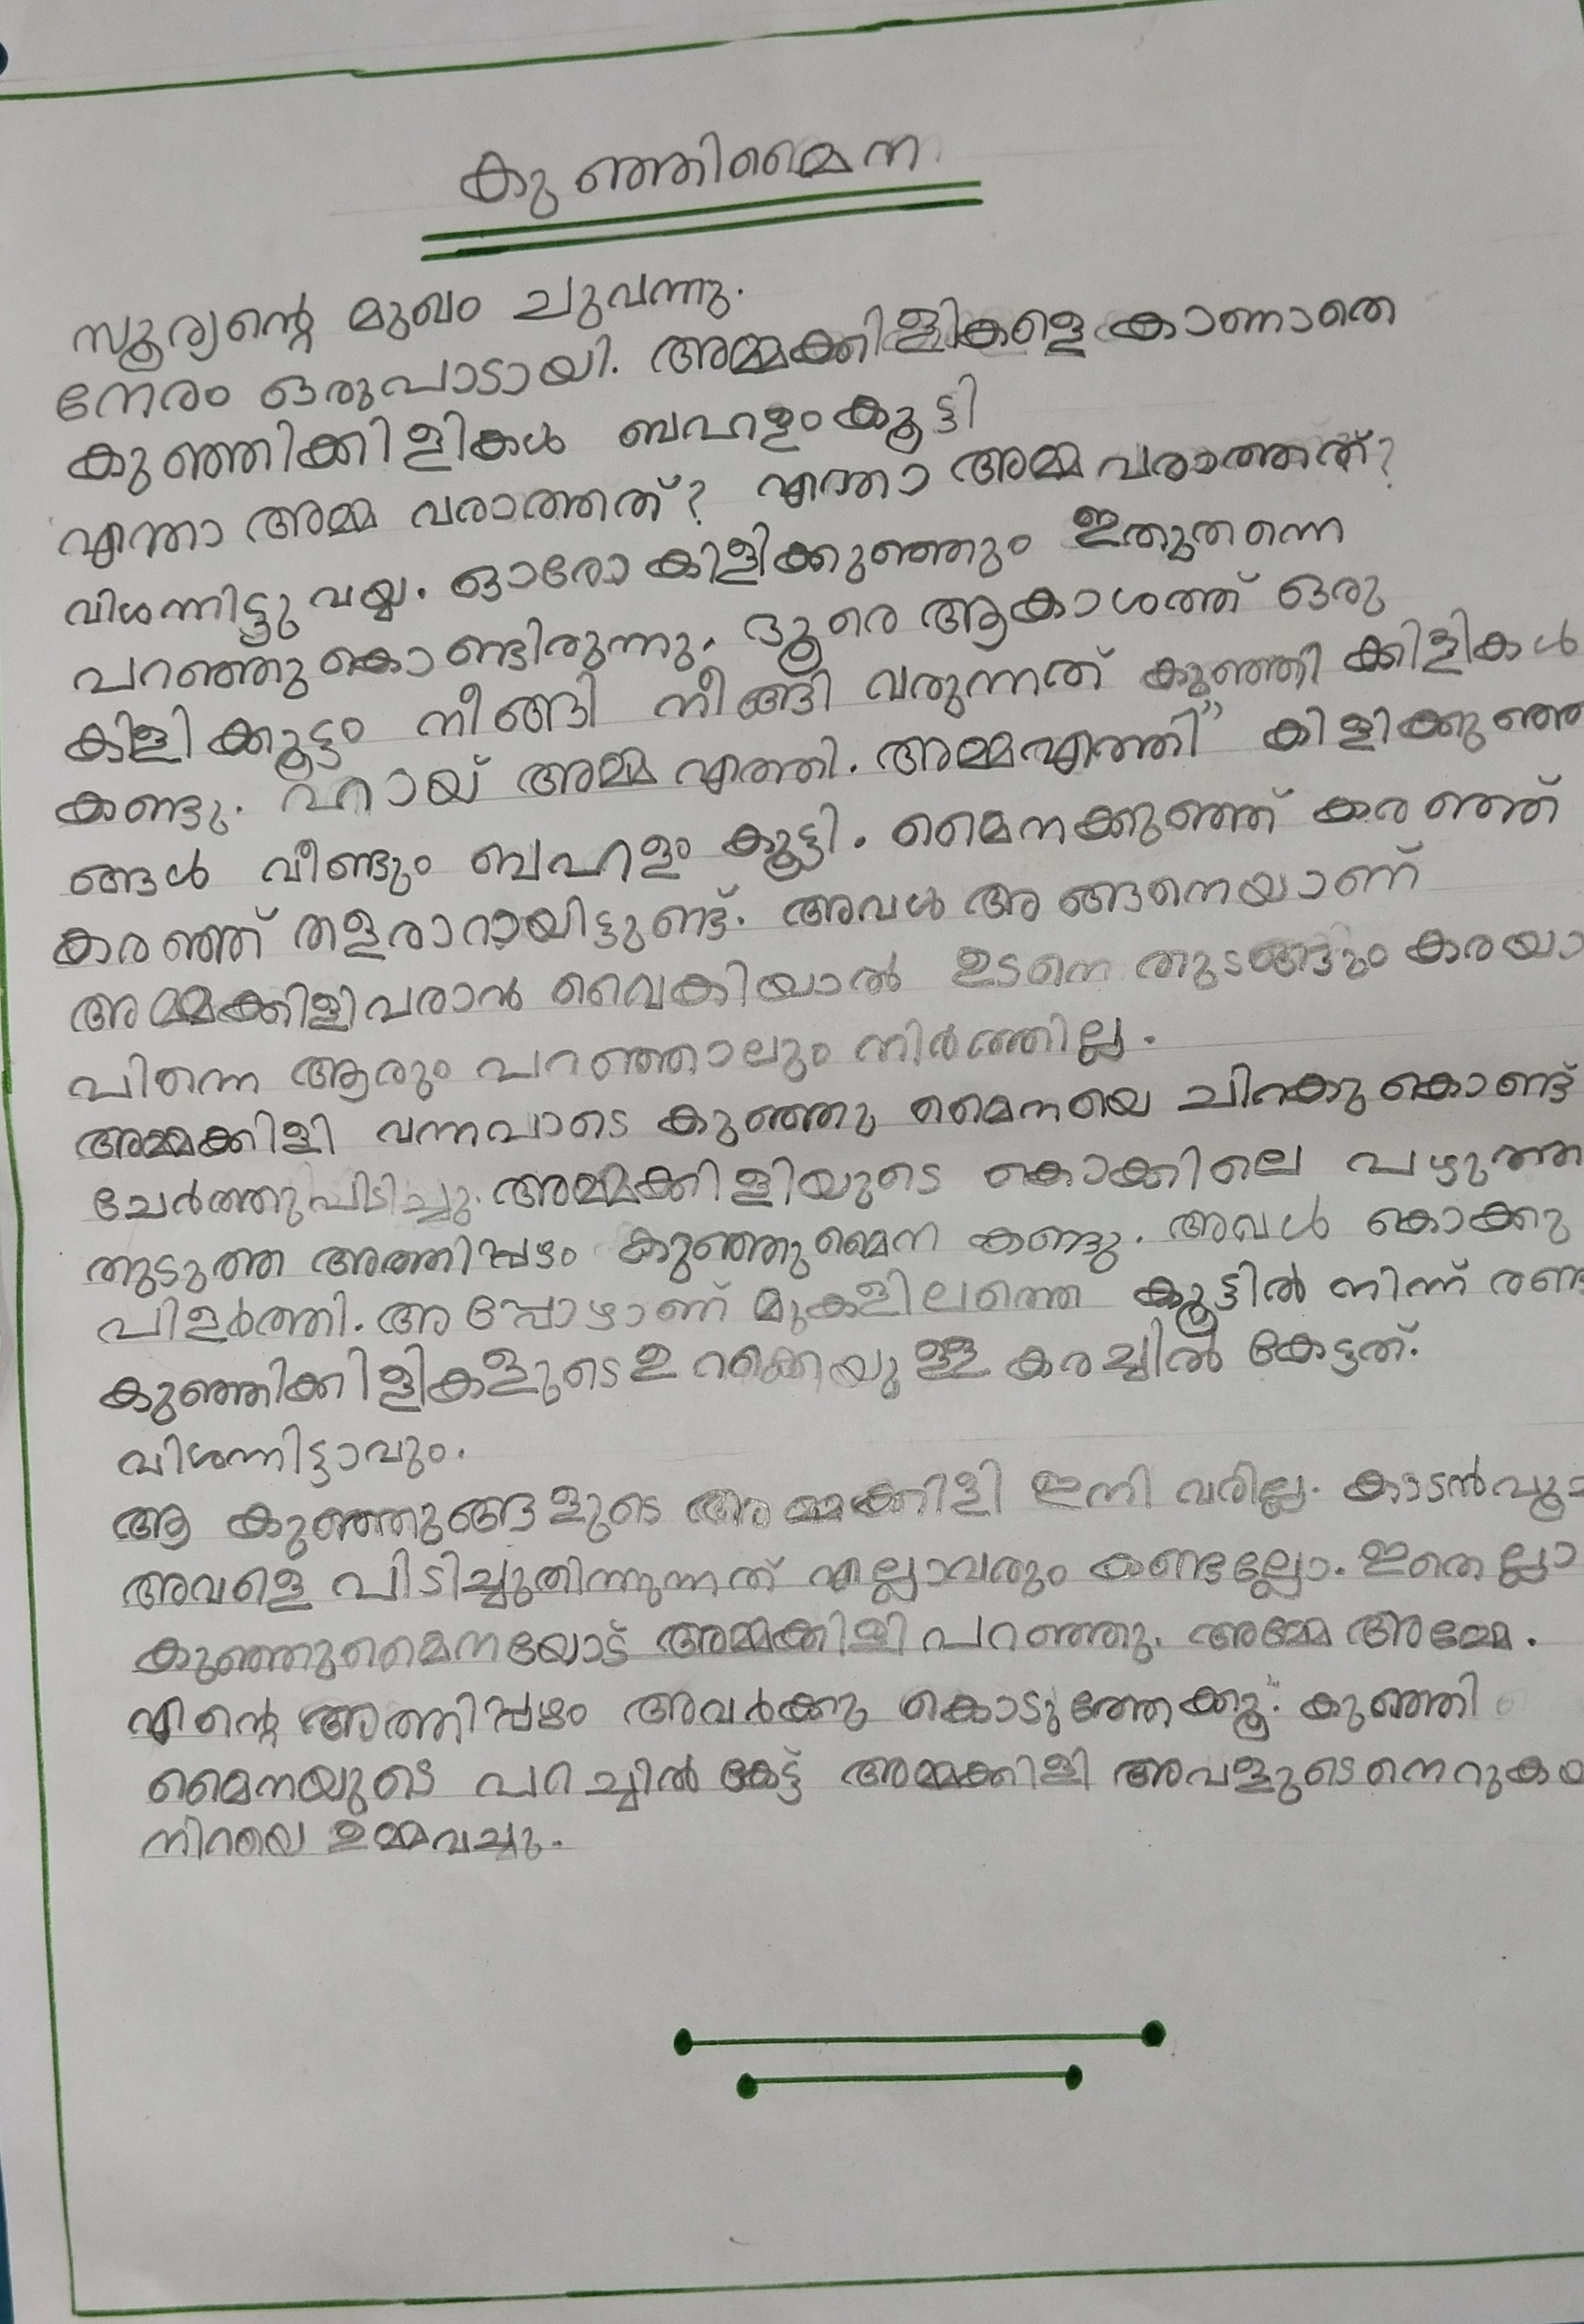 കുഞ്ഞിമൈന
സൂര്യന്റെ മുഖം ചുവന്നു.
നേരം ഒരുപാടായി. അമ്മക്കിളികളെ കാണാതെ
കുഞ്ഞിക്കിളികൾ ബഹളംകൂട്ടി
എന്താ അമ്മ വരാത്തത്? എന്താ അമ്മ വരാത്തത്?
വിശന്നിട്ടു വയ്യ. ഓരോ കിളിക്കുഞ്ഞും ഇതുതന്നെ
പറഞ്ഞു കൊണ്ടിരുന്നു. ദൂരെ ആകാശത്ത് ഒരു
കിളിക്കൂട്ടം നീങ്ങി നീങ്ങി വരുന്നത് കുഞ്ഞിക്കിളികൾ
കണ്ടു. ഹായ് അമ്മ എത്തി. അമ്മഎത്തി" കിളിക്കുഞ്ഞ
ങ്ങൾ വീണ്ടും ബഹളം കൂട്ടി. മൈനക്കുഞ്ഞ് കരഞ്ഞ്
കരഞ്ഞ് തളരാറായിട്ടുണ്ട്. അവൾ അങ്ങനെയാണ്
അമ്മക്കിളിവരാൻ വൈകിയാൽ ഉടനെ തുടങ്ങും കരയാ
പിന്നെ ആരും പറഞ്ഞാലും നിർത്തില്ല.
അമ്മക്കിളി വന്നപാടെ കുഞ്ഞു മൈനയെ ചിറകുകൊണ്ട്
ചേർത്തുപിടിച്ചു. അമ്മക്കിളിയുടെ കൊക്കിലെ പഴുത്ത
തുടുത്ത അത്തിപ്പഴം കുഞ്ഞുമൈന കണ്ടു. അവൾ കൊക്കു
പിളർത്തി. അപ്പോഴാണ് മുകളിലത്തെ കൂട്ടിൽ നിന്ന് രണ്ട
കുഞ്ഞിക്കിളികളുടെ ഉറക്കെയുള്ള കരച്ചിൽ കേട്ടത്.
വിശന്നിട്ടാവും.
ആ കുഞ്ഞുങ്ങളുടെ അമ്മക്കിളി ഇനി വരില്ല. കാടൻപൂച
അവളെ പിടിച്ചുതിന്നുന്നത് എല്ലാവരും കണ്ടല്ലോ. ഇതെല്ലാ
കുഞ്ഞുമൈനയോട് അമ്മക്കിളി പറഞ്ഞു. അമ്മേ അമ്മേ.
എന്റെ അത്തിപ്പഴം അവർക്കു കൊടുത്തേക്കൂ." കുഞ്ഞി
മൈനയുടെ പറച്ചിൽ കേട്ട് അമ്മക്കിളി അവളുടെനെറുകയ
നിറയെ ഉമ്മവച്ചു.